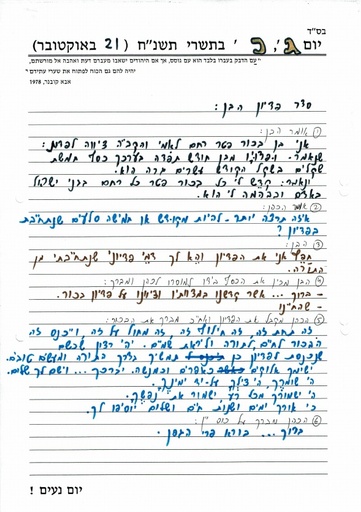 בס"ד
יום ג', כ' בתשרי תשנ"ח (21 באוקטובר)
"עם הדבק בעברו בלבד הוא עם גוסס, אך אם היהודים ישאבו מעברם דעת ואהבה אל מורשתם,
יהיה להם גם הכוח לפתוח את שערי עתידם"
אבא קובנר, 1978
סדר פדיון הבן:
① אומר הכהן:
אני בן בכור פטר רחם לאמי והקב"ה ציווה לפדותי:
שנאמר - ופדויו מבן חודש תפדה בערכך כסף חמשת
שקלים בשקל הקודש עשרים גרה הוא.
ונאמר: קדש לי כל בכור פטר כל רחם בבני ישראל
באדם ובבהמה לי הוא.
② אומר הכהן:
איזה תרצה יותר - להיות מקודש או חמישה סלעים שנתחייבת
בפדיון?
③ הבן:
חפץ אני את הפדיון והא לך דמי פדיוני שנתחייבתי מן
התורה.
④ הבן מכין את הכסף בידו למוסרו לכהן ומברך:
- ברוך ... אשר קדשנו במצוותיו וציוונו על פדיון בכור.
- שהחיינו
⑤ הכהן מקבל את הפדיון ואח"כ מברך את הבכור:
זה תחת זה, זה חילוף זה, זה מחול על זה, וייכנס זה
הבכור לחיים לתורה וליראת שמים. יהי רצון שכשם
שנכנסת לפדיון כן תמשיך בדרך התורה ומעשים טובים.
ישימך אלוקים כאפרים וכמנשה. יברכך ... וישם לך שלום.
ה' שומרך, ה' צילך על יד ימינך.
ה' ישמורך מכל רע ישמור את נפשך.
כי אורך ימים ושנות חיים ושלום יוסיפו לך.
⑥ הכהן מברך על כוס יין:
ברוך ... בורא פרי הגפן.
יום נעים !